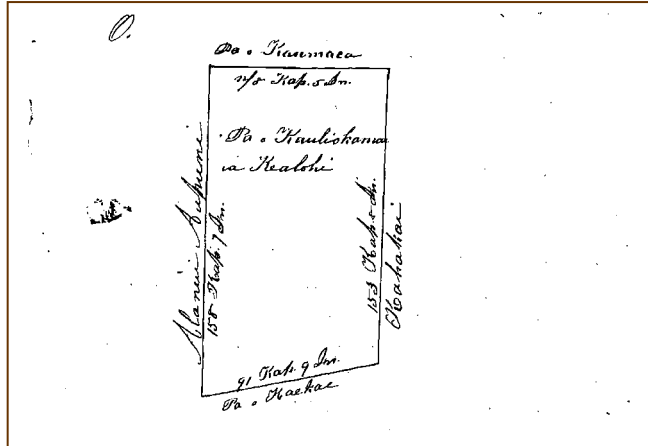 O.
Pa o Kaumaea
Kap. 5 In.
Pa o Kauliokamoa
ia Kealohi
Alanui Aupuni
158 Kap. 7 In.
153 Kap. 5 In.
Kahakai
91 Kap. 9 In.
Pa o Kaekae